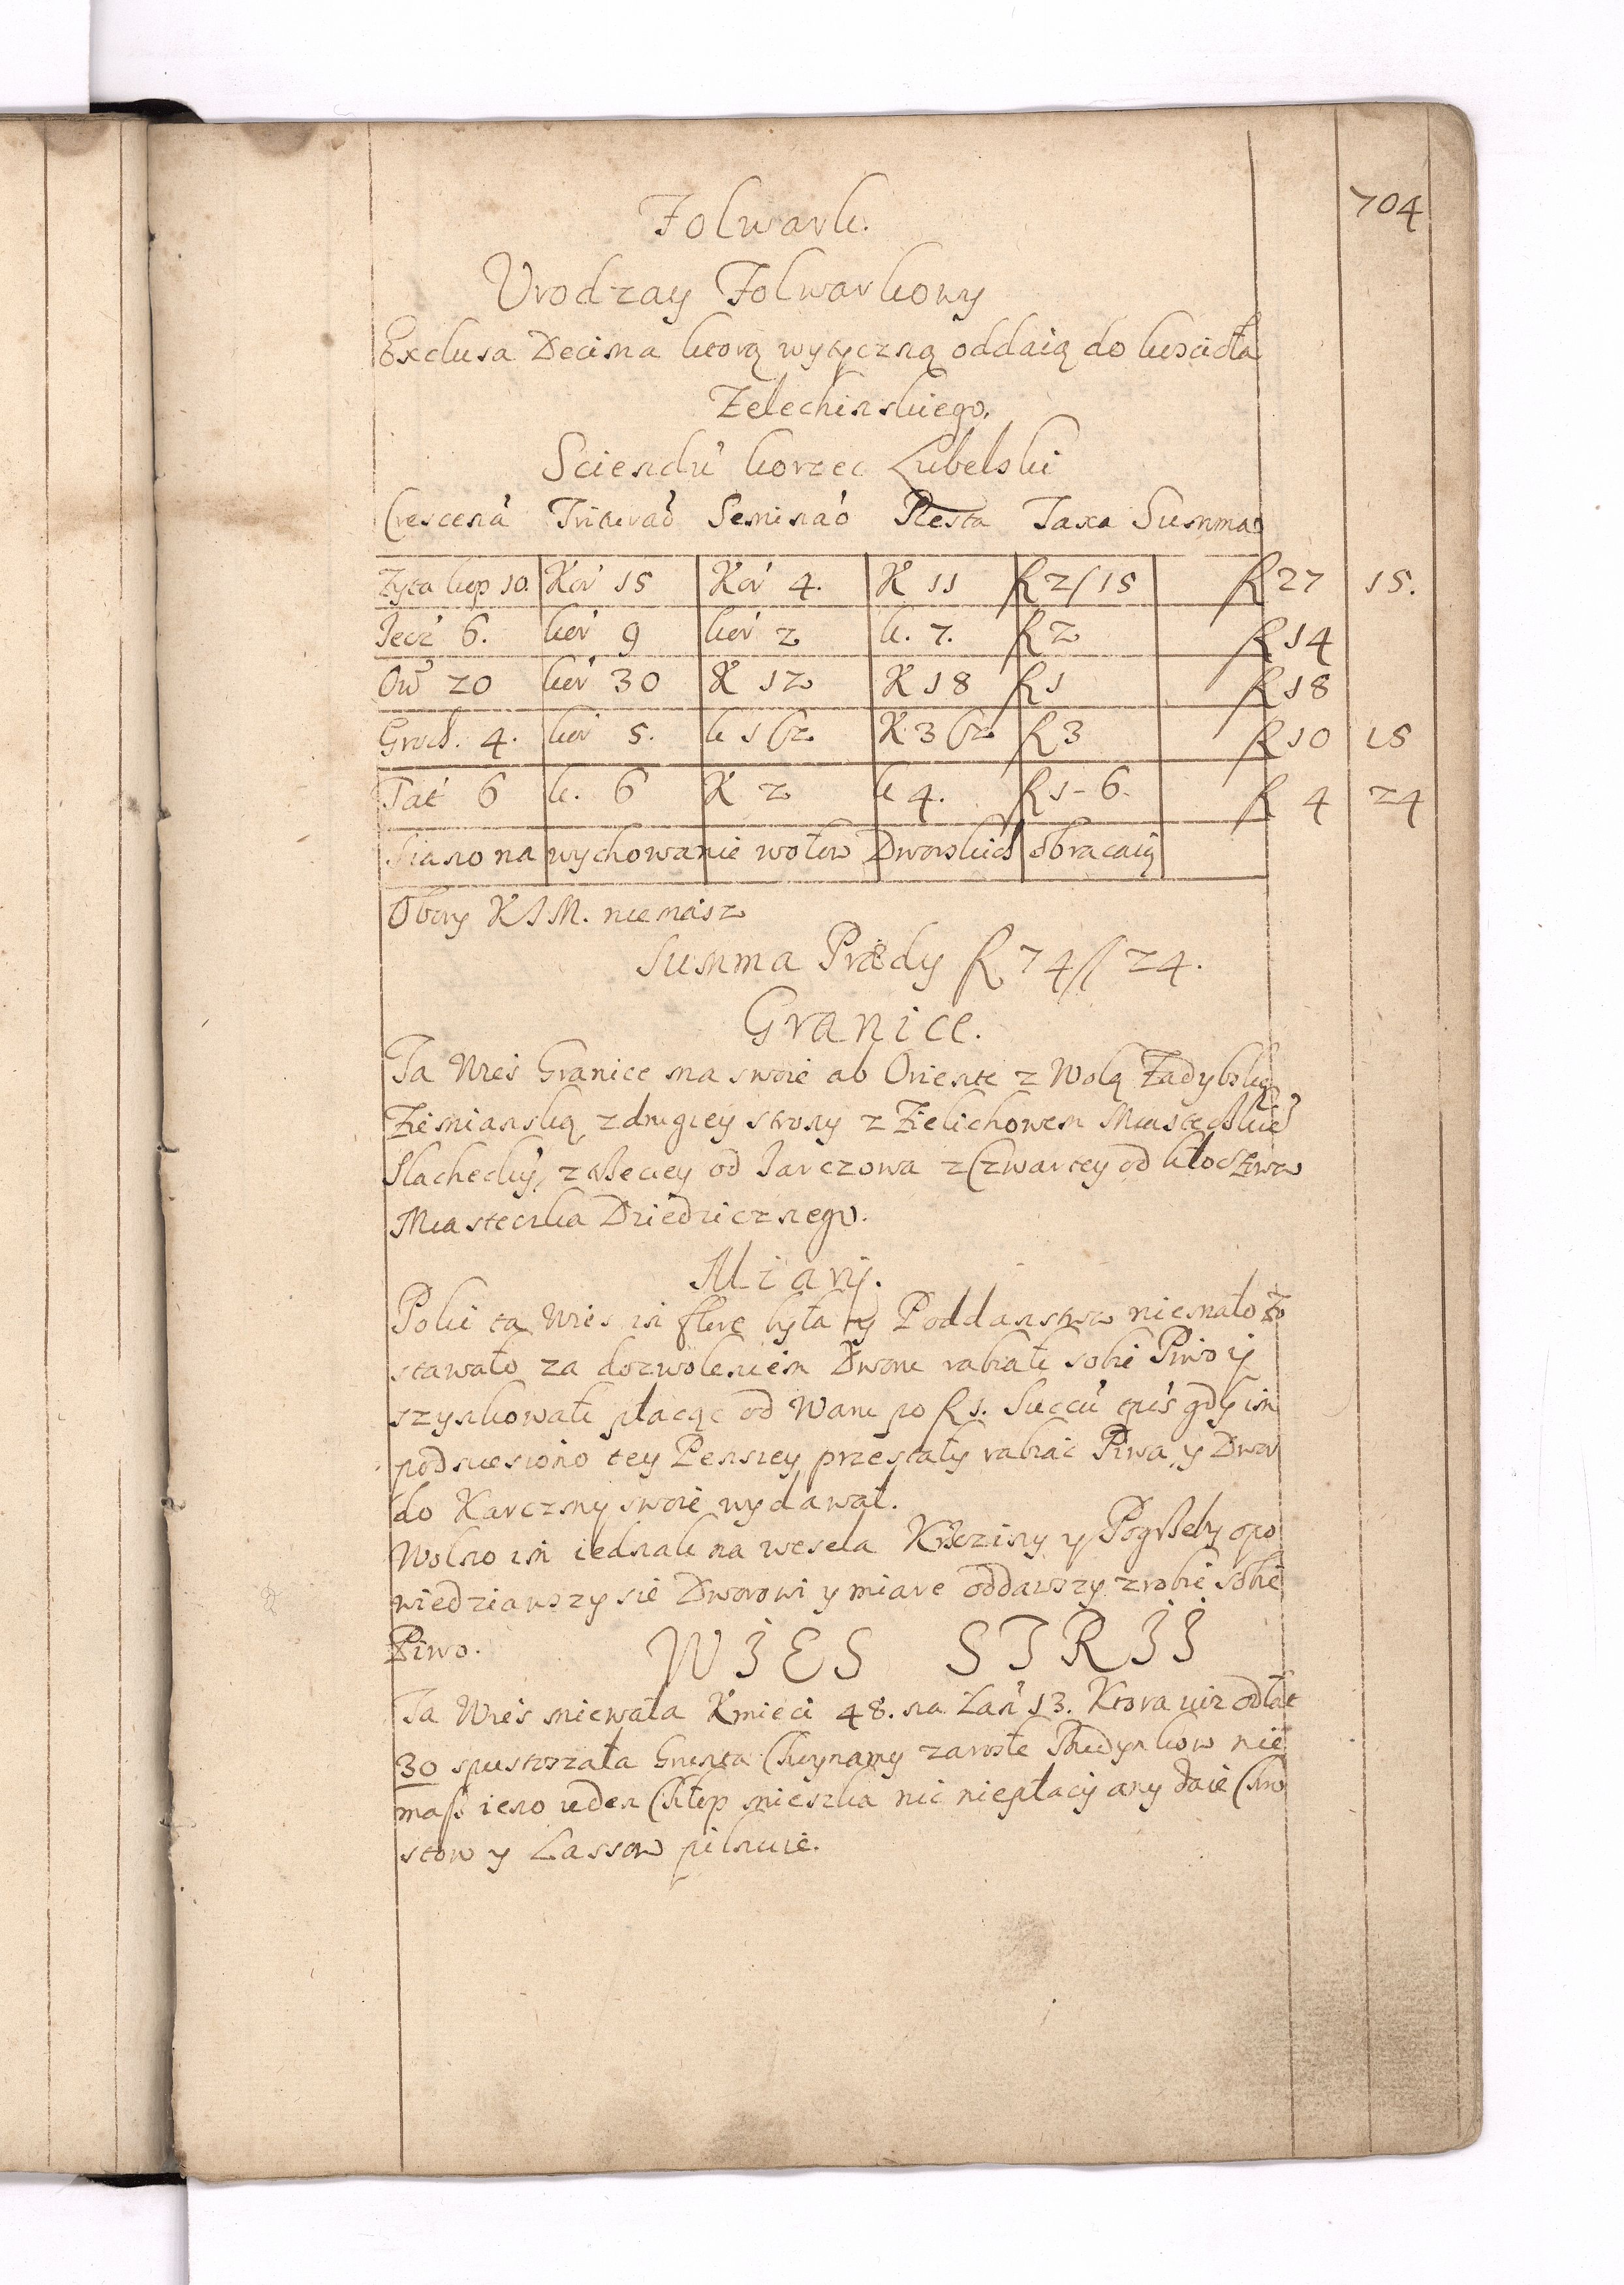 704
Folwark.
Urodzay Folwarkowy
Exclusa Decima ktorą wytyczną oddaią do kościoła
Zelechinskiego.
Sciendu korzec Lubelski
Crescena Triturao Seminao Resta Taxa Summa
Zyta kop 10. Kor 15 Kor 4. K 11 fl 2/15 fl 27 15.
Jecz 6. kor 9 kor 2 k. 7. fl 2 fl 14
Ow 20 kor 30 K 12 K 18 fl 1 fl 18
Groch. 4. kor 5. k 1 (2 K 3 (2 fl 3 fl 10 15
Tat 6 k. 6 K 2 k 4. fl 1-6. fl 4 24
Siano na wychowanie wołow Dworskich obracaią
Obory KJM. niemasz
Summa Prædy fl 74// 24.
Granice.
Ta Wieś Granice ma swoie ab Oriente z Wolą Zadybską
Ziemianską, z drugiey strony z Zielichowem Miastecskie
Slacheckij, z trzeciey od Jarczowa z Czwartey od Kłoczewa
Miasteczka Dziedzicznego.
Miary.
Poki ta Wies in flore była y Poddanstwa niemało zo
stawało za dozwoleniem Dworu rabiali sobie Piwo ij
szynkowali płacąc od Waru po fl 1. Succu tpis gdy im
podniesiono tey Pensiey przestały rabiać Piwa y Dwor
do Karczmy swoie wydawał.
Wolno im iednak na wesela Krzciny y Pogrzeby opo
wiedziawszy sie Dworowi y miare oddawszy zrobić sobie
Piwo. WIES STRIJ
Ta Wieś miewała Kmieci 48. na Łan 13. Ktora iuz od lat
30 spustoszała Grunta Chuynamy zarosłe Budynkow nie
masz ieno ieden Chłop mieszka nic niepłacij any daie Chro
stow y Lassow pilnuie.